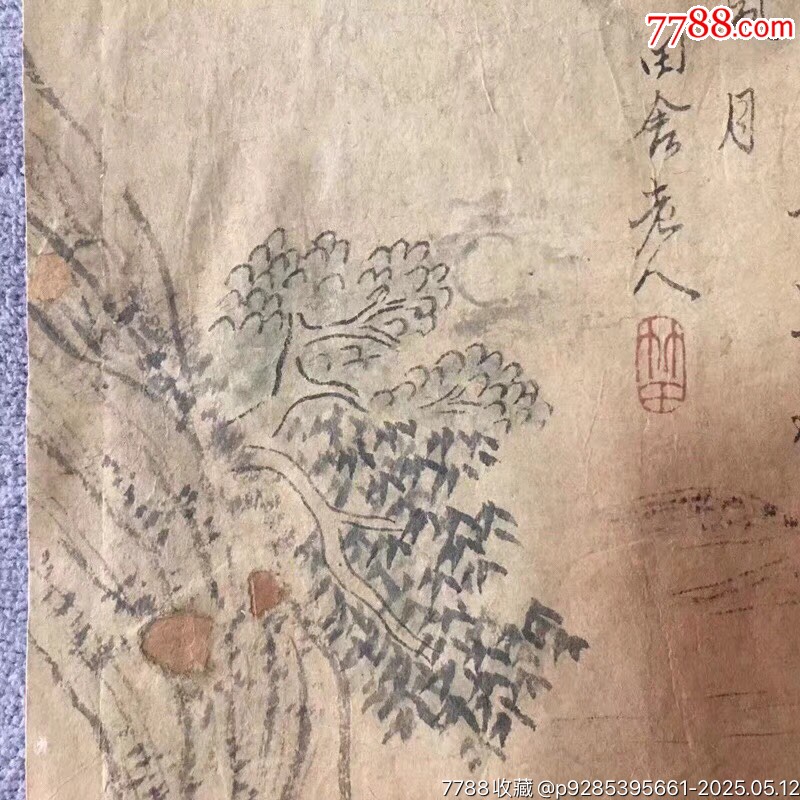 7788.com
月
田舍老人
竹田
7788收藏 @p9285395661-2025.05.12